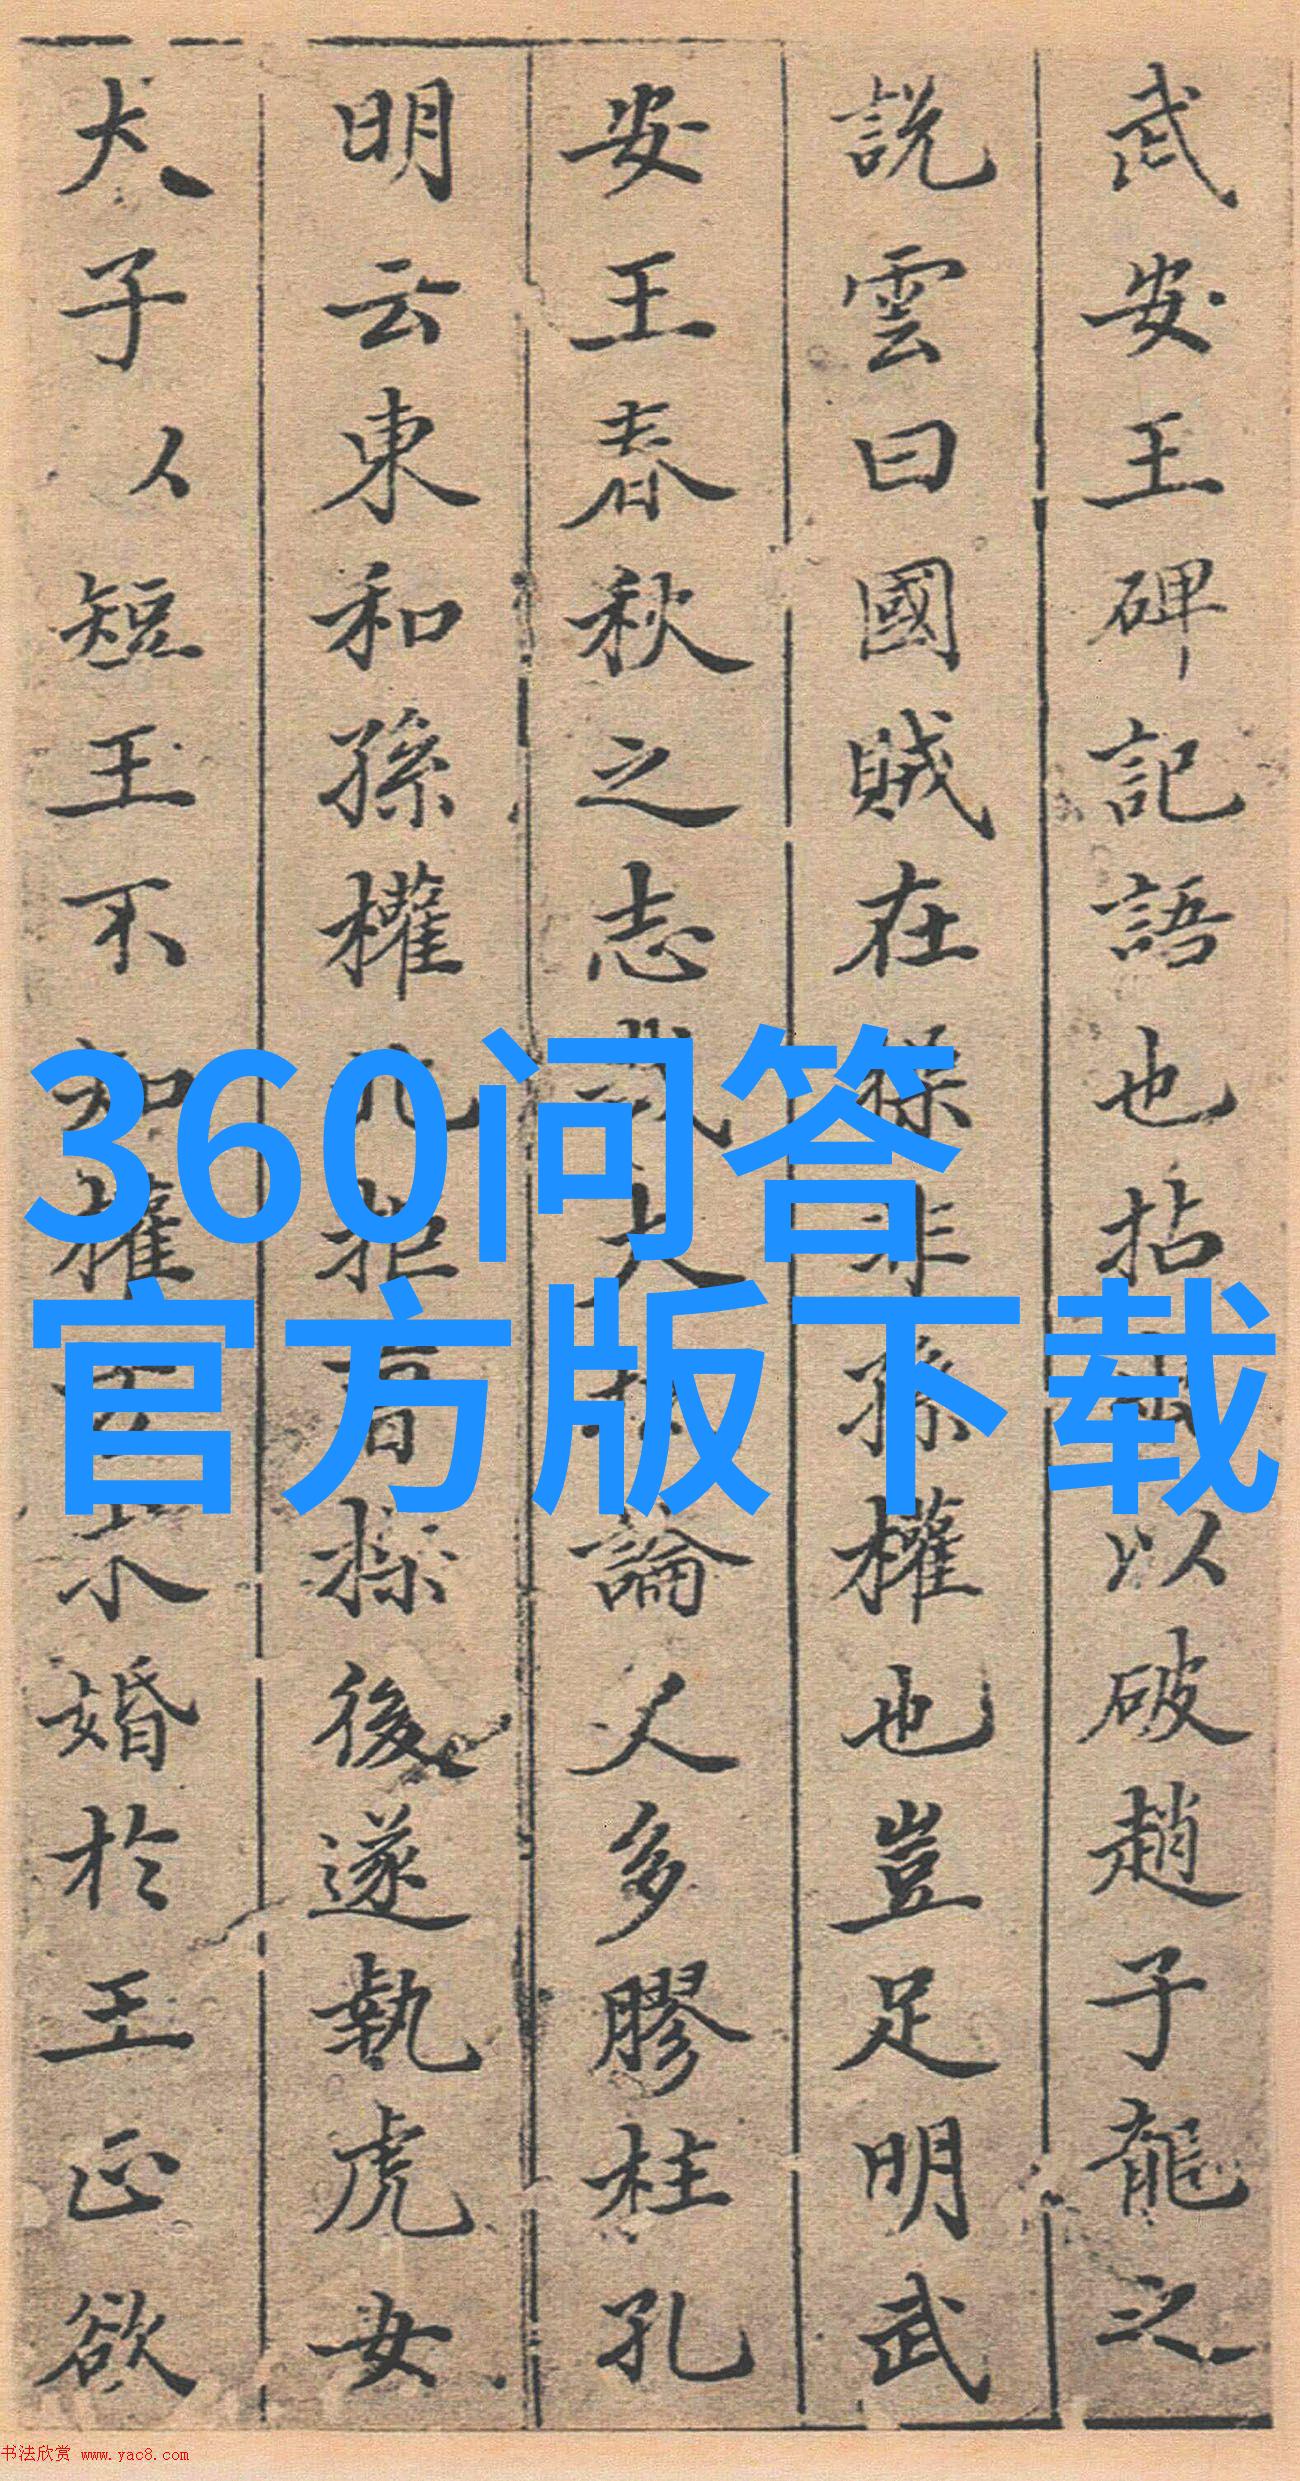 武安王碑記語也拈以破趙子龍之
說雲曰國賊在操非孫權也豈足明武
安王春秋之志哉大論人多膠柱孔
明云東和孫權北拒曹操後遂執虎女
犬子以短王不知權求婚於王正欲
360问答
官方版下载
书法欣赏 www.yac8.com